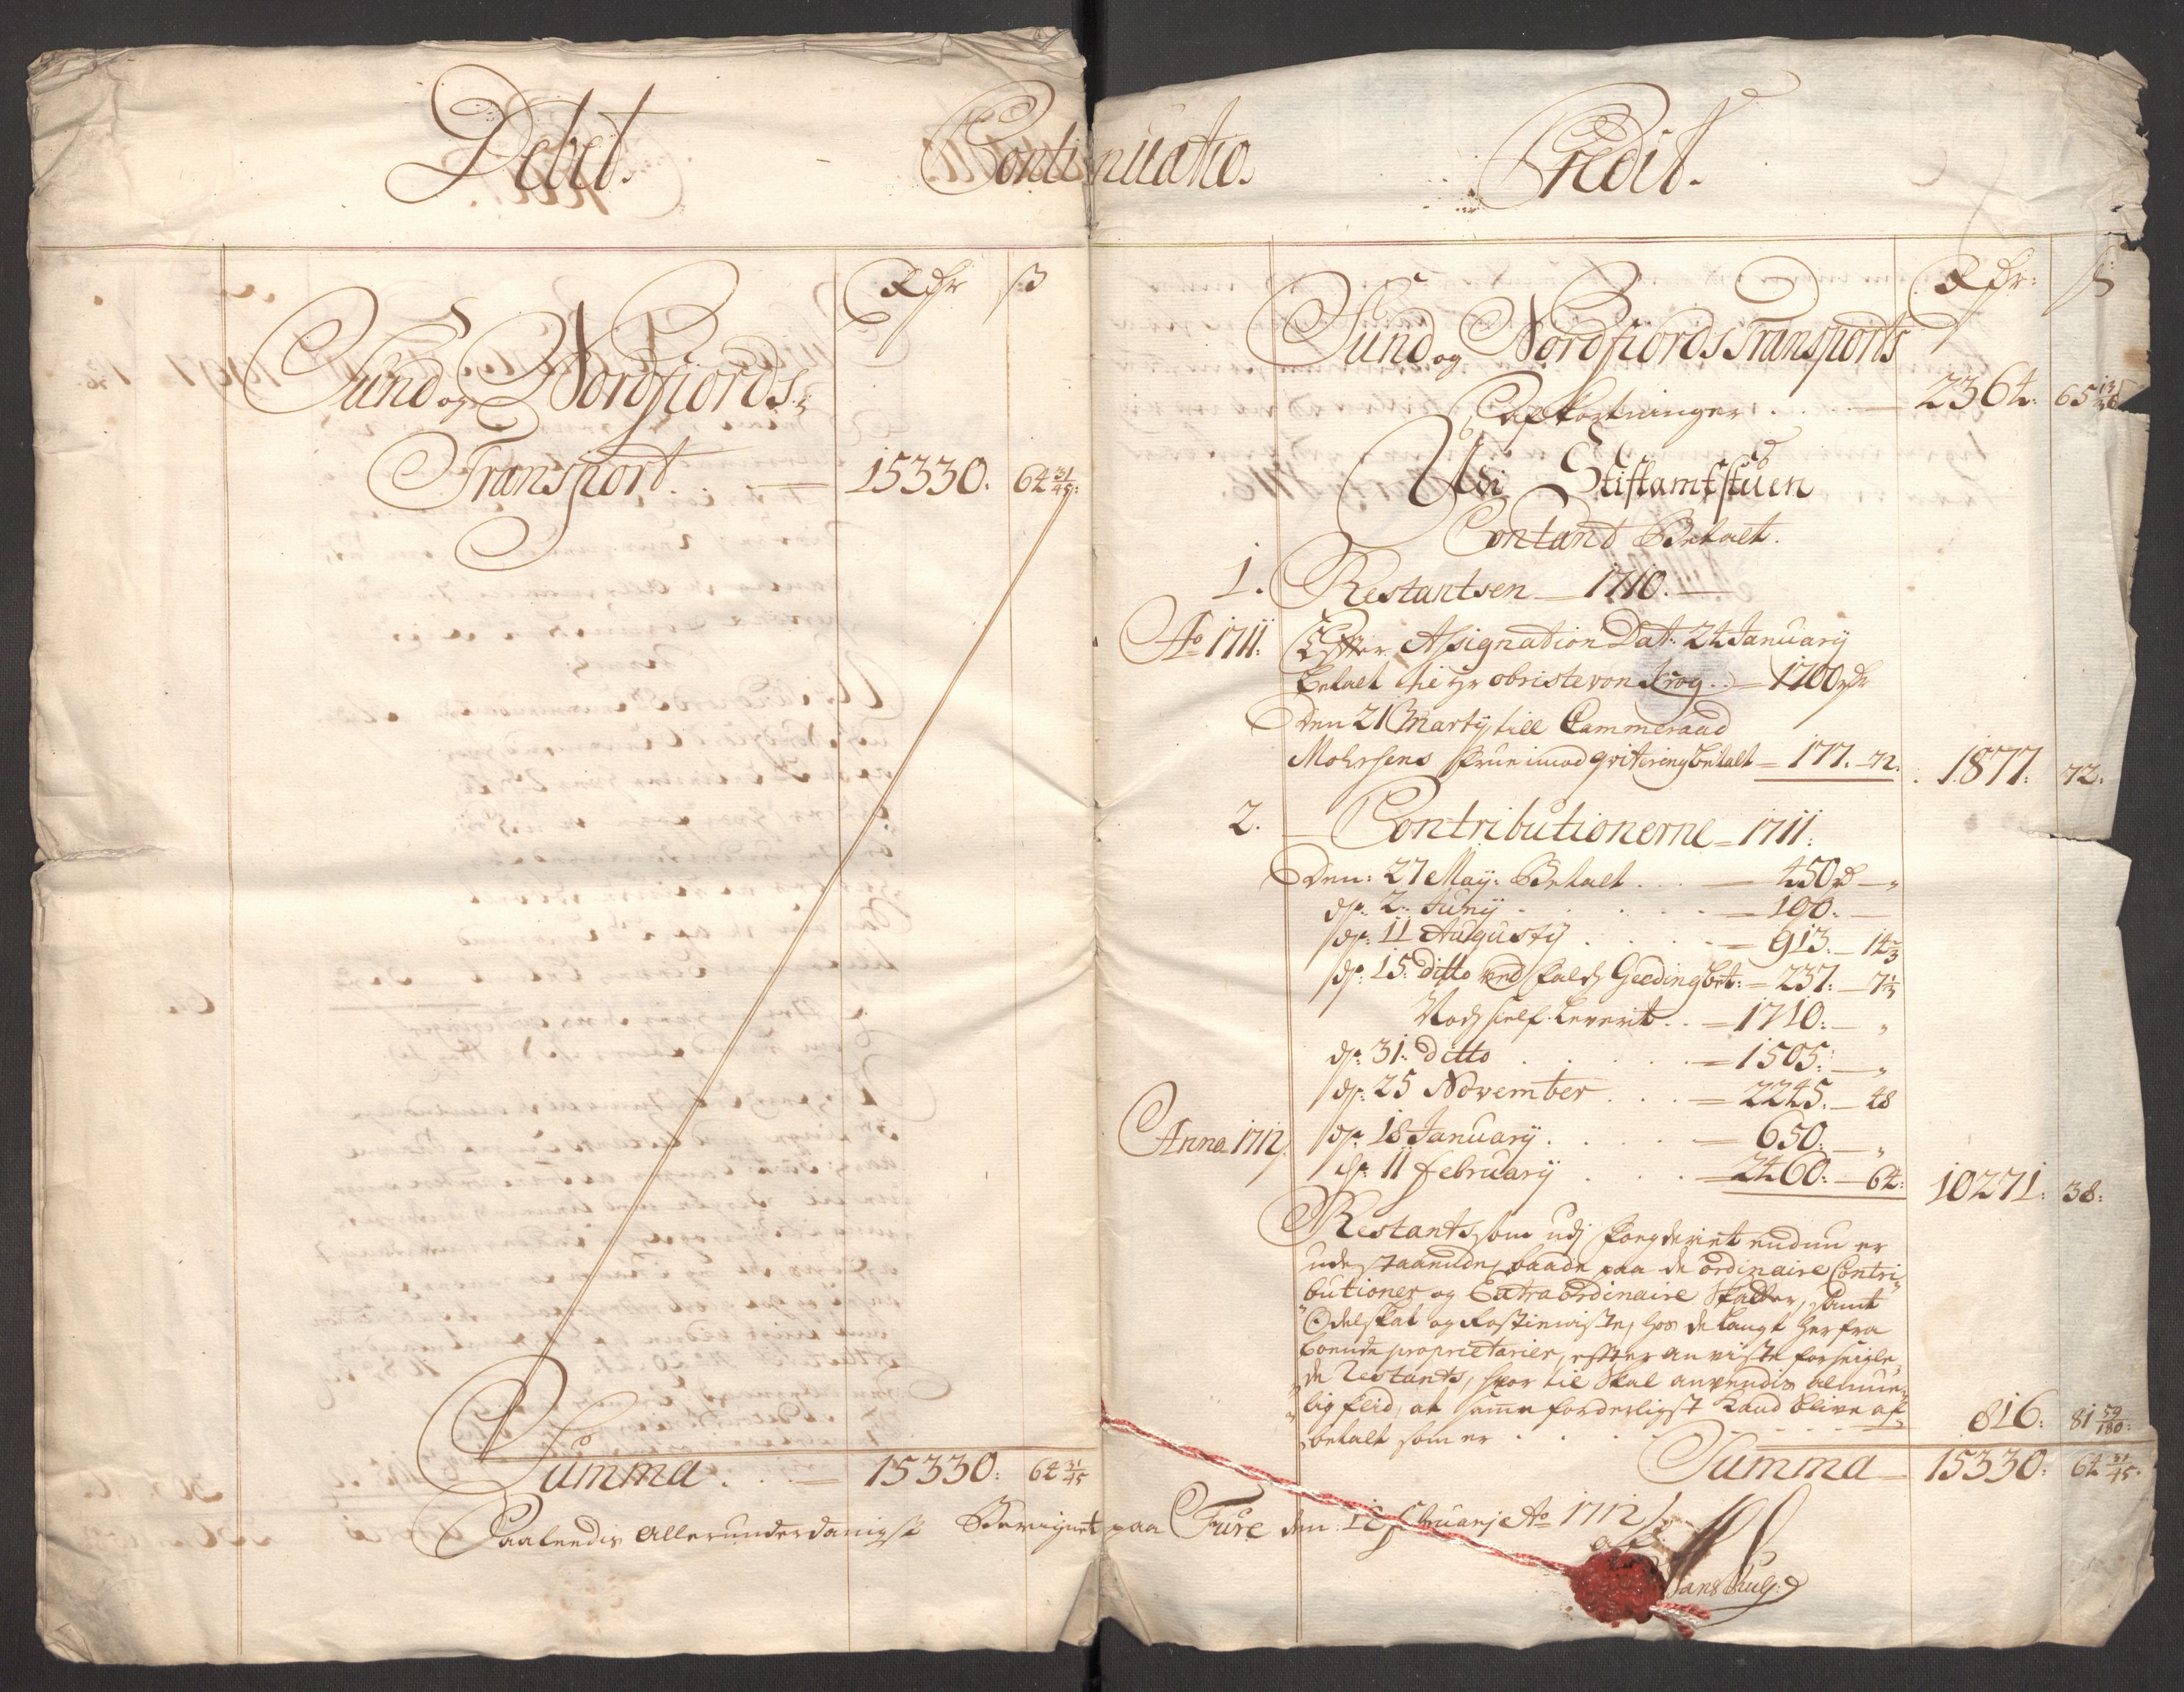 Debet. Continuatio. Credit.
Rdr ß
Sund og Nordfiords
Transport. 15330. 64 31/45:
Summa . . 15330: 64 31/45
Rdr: ß
Sund og Nordfiords Transports
afkortninger . . 2364. 65
Udi Stiftamtstuen
Contand Betalt.
1. Restantsen 1710.
Ao 1711. Efter Assignation Dat. 24 January
betalt til Hr obriste von Krog . . 1700 rdr
Den 21 Marty till Cammeraad
Mohrsens Frue imod qvitering betalt 177. 72. 1877. 72.
2. Contributionerne 1711.
Den: 27 May. Betalt . . 450 rd
dr. 2. Juny . . . 100.
dr. 11 Augusty . . . 913. 14 2/3
dr. 15. ditto ved Geeding bet. 237. 7 1/3
Nock self leverit . . 1710.
dr. 31. ditto . . . 1505.
dr. 25 November . . . 2245. 48
Anno 1712. dr. 18 January . . . 650.
dr. 11 february . . . 2460. 64. 10271. 38.
Restants, som udj fogderiet endnu er
udestaaende, baade paa de ordinaire Contri-
butioner og Extraordinaire Skatter, samt
Odelskat og Rostieniste, hos de langt herfra
boende proprietarier, efter anviste forseigle-
de Restants, hvor til skal anvendis almue-
lig flid, at samme forderligst kand blive af-
betalt som er . . . 816. 81 59/180:
Summa 15330. 64 31/45.
Saaleedis Allerunderdanigst Beregnet paa Fure den 16 february Ao 1712
af